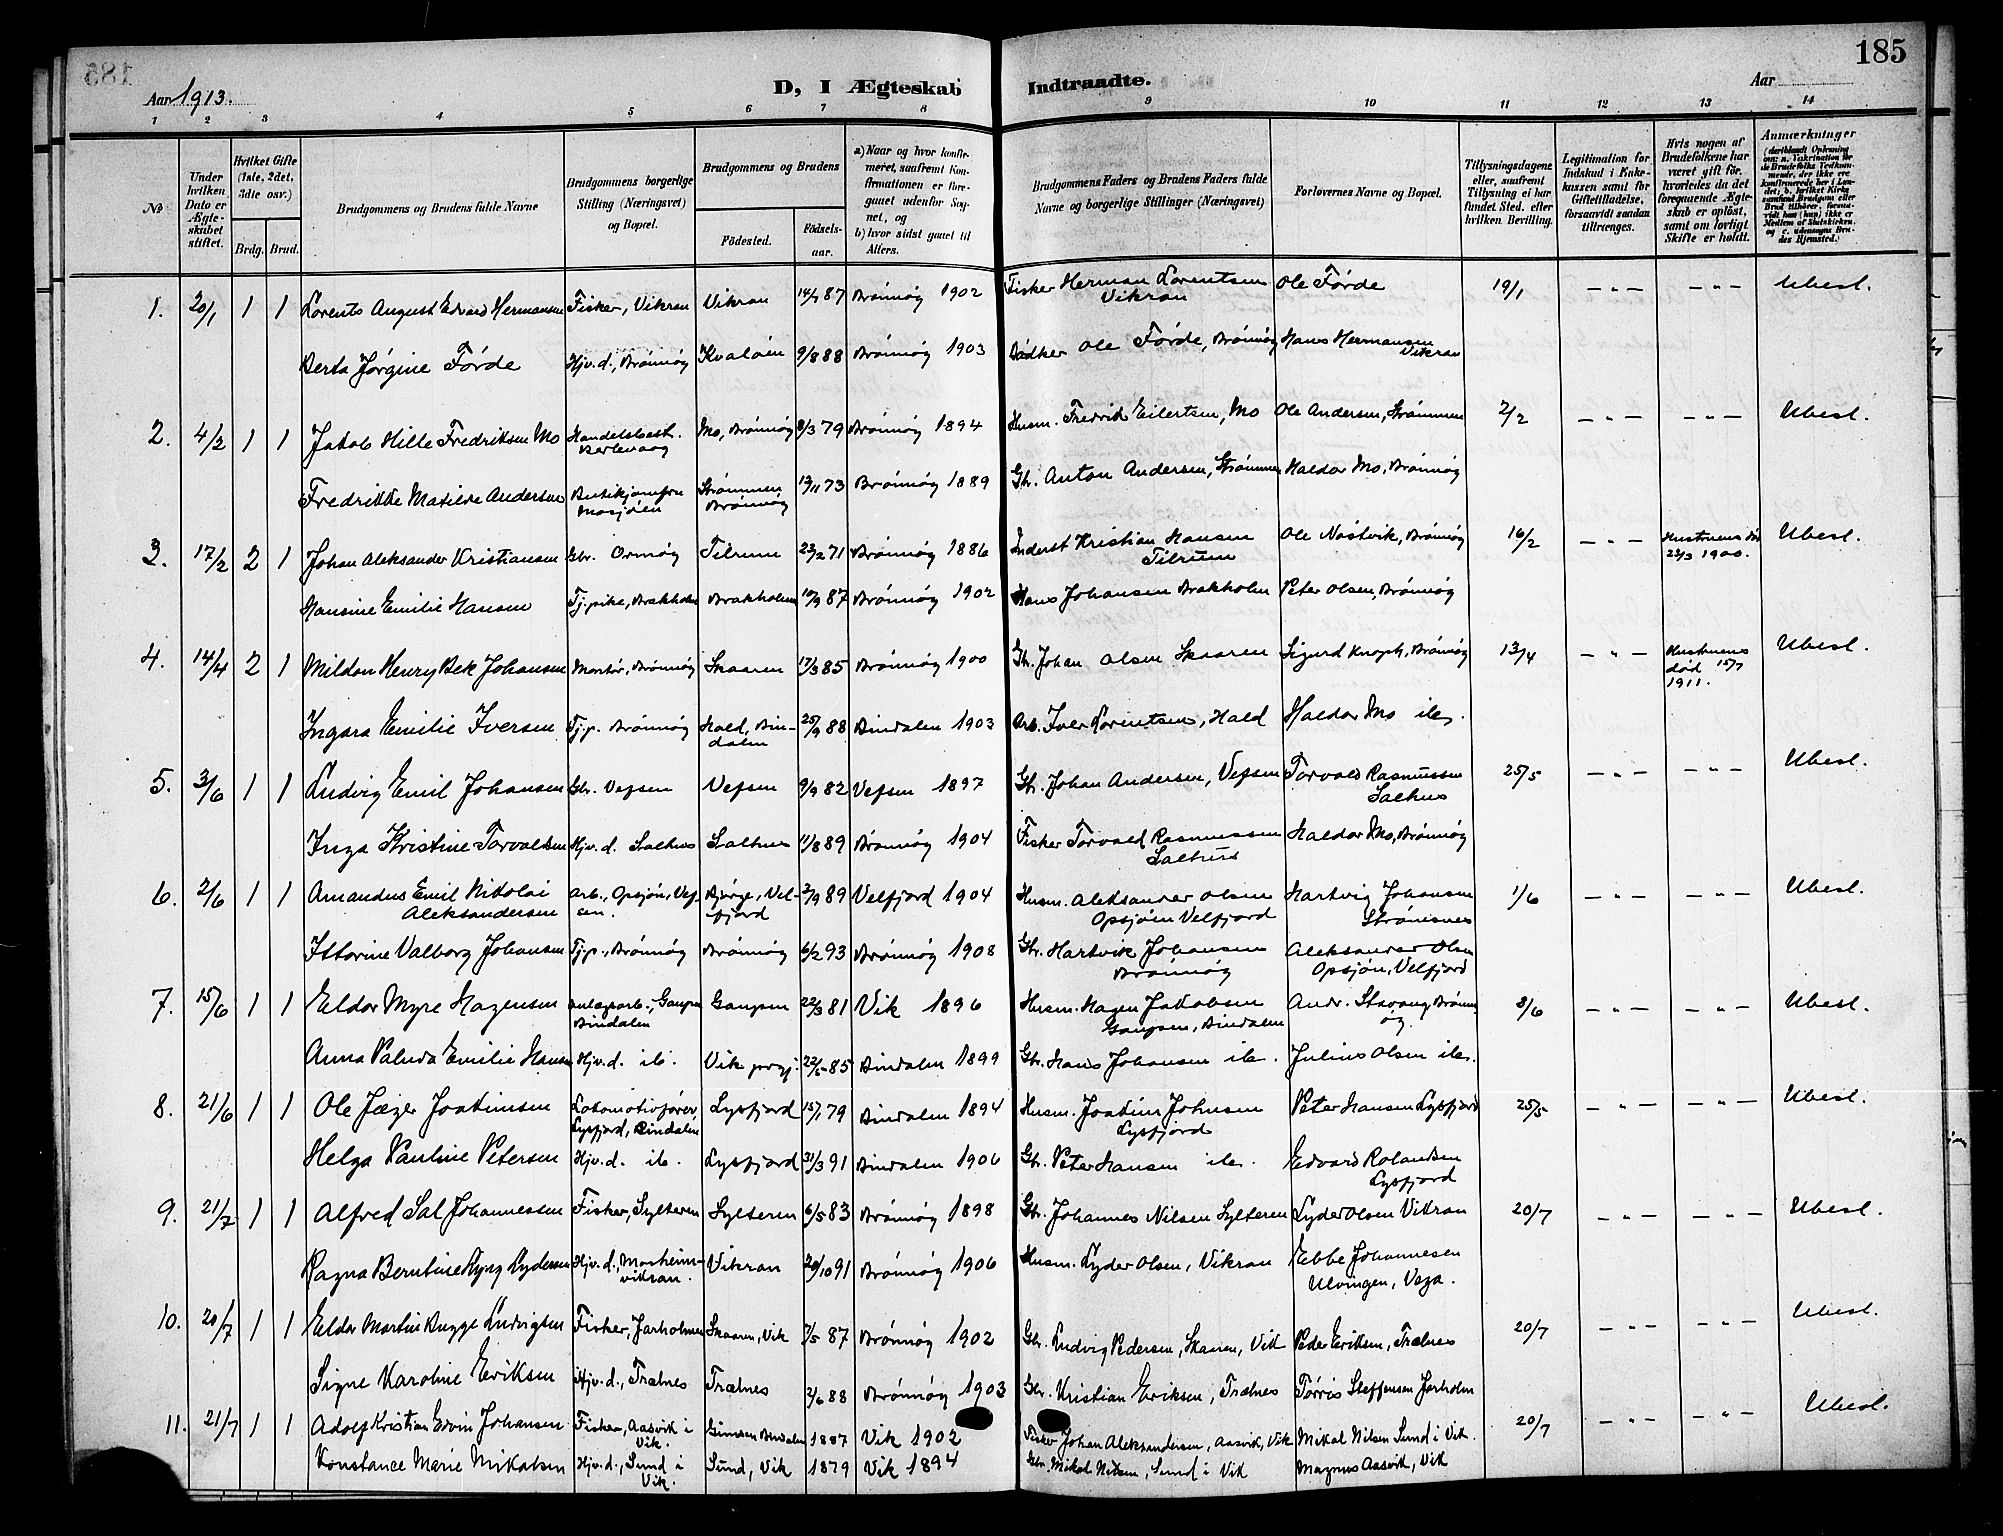 185
Aar 1913.
D, I Ægteskab
Indtraadte.
Aar
1 2 3 4 5 6 7 8 9 10 11 12 13 14
№
Under hvilken Dato er Ægteskabet stiftet.
Hvilket Gifte (1ste, 2det, 3die osv.)
Brdg. Brud.
Brudgommens og Brudens fulde Navne
Brudgommens borgerlige Stilling (Næringsvei) og Bopæl.
Brudgommens og Brudens
Fødested.
Fødselsaar.
a) Naar og hvor konfirmeret, saafremt Konfirmationen er foregaaet udenfor Sognet, og
b) hvor sidst gaaet til Alters.
Brudgommens Faders og Brudens Faders fulde Navne og borgerlige Stillinger (Næringsvei)
Forlovernes Navne og Bopæl.
Tillysningsdagene eller, saafremt Tillysning ei har fundet Sted, efter hvilken Bevilling.
Legitimation for Indskud i Enkekassen samt for Giftetilladelse, forsaavidt saadan tiltrænges.
Hvis nogen af Brudefolkene har været gift før, hvorledes da det foregaaende Ægteskab er opløst, samt om lovligt Skifte er holdt.
Anmærkninger
1. 20/1 1 1 Lorents August Edvard Hermansen Fisker, Vikran Vikran 14/7 87 Brönnöy 1902 Fisker Herman Lorentsen Vikran Ole Förde 19/1 — " — — " — Ubesl.
Berta Jørgine Förde Hjv.d., Brönnöy Kvalöen 9/8 88 Brönnöy 1903 Bödker Ole Förde, Brönnöy Hans Hermansen Vikran
2. 4/2 1 1 Jakob Hille Fredriksen Mo Handelsbest. Berlevaag Mo, Brönnöy 8/3 79 Brönnöy 1894 Husm. Fredrik Eilertsen, Mo Ole Andersen, Strömmen 2/2 — " — — " — Ubesl.
Fredrikke Matilde Andersen Butikjomfru Mosjöen Strömmen Brönnöy 13/11 73 Brönnöy 1889 Gbr. Anton Andersen, Strömmen Haldor Mo, Brönnöy
3. 17/2 2 1 Johan Aleksander Kristiansen Gbr. Ormöy Tilrum 23/2 71 Brönnöy 1886 Inderst Kristian Hansen Tilrum Ole Nöstvik, Brönnöy 16/2 — " — Hustruens död 23/3 1900. Ubesl.
Hansine Emilie Hansen Tj.pike, Brakholm Brakholmen 10/9 87 Brönnöy 1902 Hans Johansen Brakholm Peter Olsen, Brönnöy
4. 14/4 2 1 Mildon Henry Bek Johansen Montör, Brönnöy Skaaren 17/3 85 Brönnöy 1900 Gb. Johan Olsen Skaaren Sigurd Knoph, Brönnöy 13/4 — " — Hustruens død 15/7 1911. Ubesl.
Ingara Emilie Iversen Tj.p. Brönnöy Hald, Bindalen 25/9 88 Bindalen 1903 Arb. Iver Lorentsen, Hald Haldor Mo ib.
5. 3/6 1 1 Ludvig Emil Johansen Gbr. Vefsen Vefsen 9/9 82 Vefsen 1897 Gb. Johan Andersen, Vefsen Torvald Rasmussen Salhus 25/5 — " — — " — Ubesl.
Inga Kristine Torvaldsen Hjv.d. Salhus Salhus 11/8 89 Brönnöy 1904 Fisker Torvald Rasmussen Salhus Haldor Mo, Brönnöy
6. 2/6 1 1 Amandus Emil Nikolai Aleksandersen Arb., Opsjön, Vefsen. Bjørge, Velfjord 2/9 89 Velfjord 1904 Husm. Aleksander Olsen Opsjöen Velfjord Hartvig Johansen Strömsnes 1/6 — " — — " — Ubesl.
Ittorine Valborg Johansen Tj.p., Brönnöy Brönnöy 6/2 93 Brönnöy 1908 Gbr. Hartvik Johansen Brönnöy Aleksander Olsen Opsjön, Velfjord
7. 15/6 1 1 Eldor Myre Hagensen Anlægsarb., Gaupen Bindalen Gaupen 22/3 81 Vik 1896 Husm. Hagen Jakobsen Gaupen, Bindalen Andr. Stavang Brönnöy. 8/6 — " — — " — Ubesl.
Anna Paluda Emilie Hansen Hjv.d. ib. Vik prgj. 22/5 85 Bindalen 1899 Gbr. Hans Johansen ib. Julius Olsen ib.
8. 21/6 1 1 Ole Jæger Joakimsen Lokomotivfører, Lysfjord, Bindalen Lysfjord 15/1 79 Bindalen 1894 Husm. Joakim Johnsen Lysfjord Peter Hansen Lysfjord 25/5 — " — — " — Ubesl.
Helga Pauline Petersen Hjv.d. ib. Lysfjord 31/3 91 Bindalen 1906 Gb. Peter Hansen ib. Edvard Rolandsen Lysfjord
9. 21/7 1 1 Alfred Sal Johannessen Fisker, Sylteren Sylteren 6/5 83 Brönnöy 1898 Gbr. Johannes Nilsen Sylteren Lyder Olsen Vikran 20/7 — " — — " — Ubesl.
Ragna Berntine Ryng Lydersen Hjv.d., Vikran Vikran 20/10 91 Brönnöy 1906 Husm. Lyder Olsen, Vikran Ebbe Johannesen Ulvingen, Vega.
10. 20/7 1 1 Eldor Martin Bugge Ludvigsen Fisker, Jarholmen Skaaren, Vik 7/5 87 Brönnöy 1902 Gbr. Ludvig Pedersen, Skaaren, Vik Peder Eriksen, Trælnes 20/7 — " — — " — Ubesl.
Signe Karoline Eriksen Hjv.d., Trælnes Trælnes 2/6 88 Brönnöy 1903 Gbr. Kristian Eriksen, Trælnes Törris Steffensen Jarholm
11. 21/7 1 1 Adolf Kristian Edvin Johansen Fisker, Aasvik i Vik. Bindalen 1887 Vik 1902 Fisker Johan Aleksandersen, Aasvik, Vik Mikal Nilsen Sund i Vik. 20/7 — " — — " — Ubesl.
Konstance Marie Mikalsen Hjv.d., Sund i Vik. Sund, Vik 1879 Vik 1894 Gbr. Mikal Nilsen, Sund i Vik Magnus Aasvik, Vik